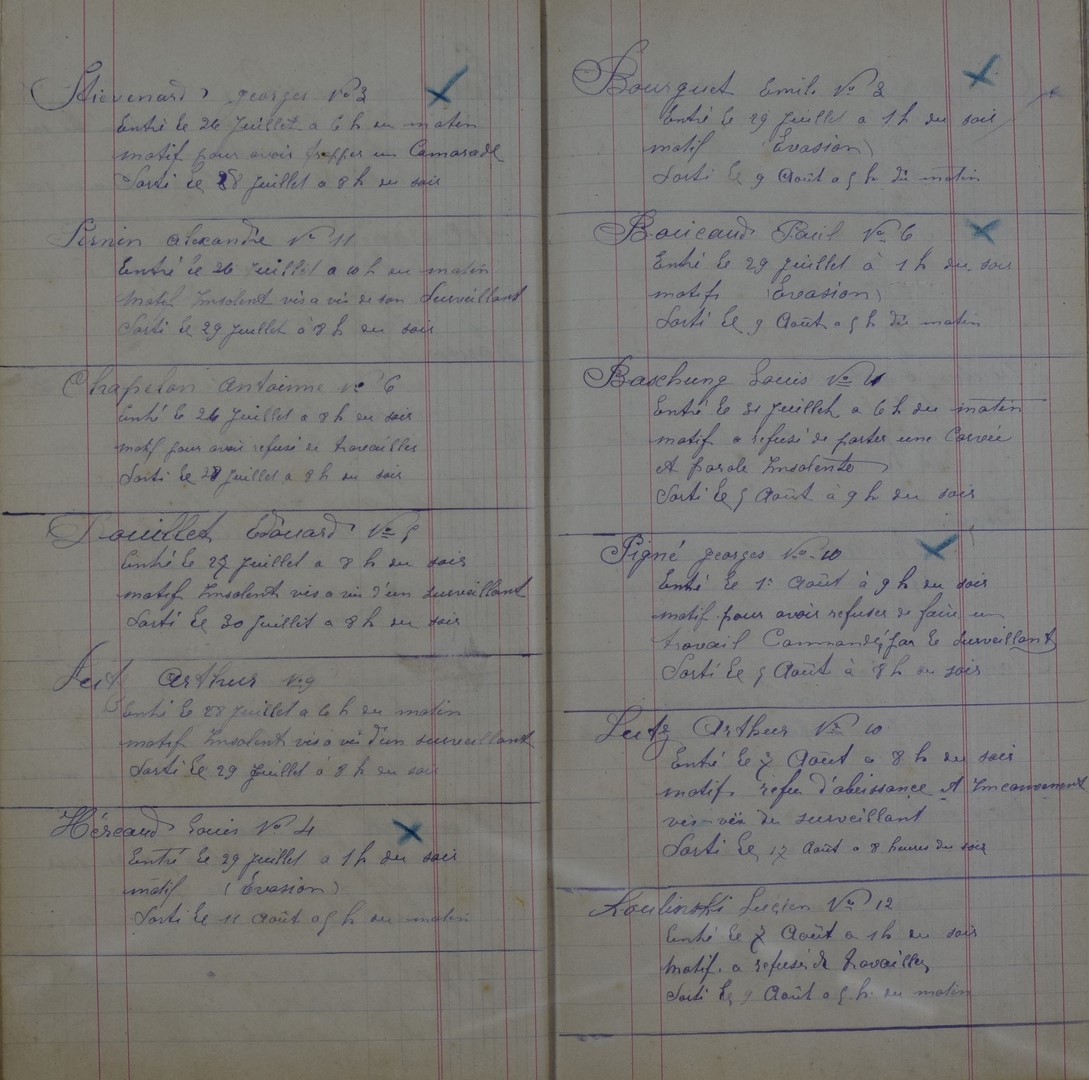 Stievenard georges No 3
Entré le 26 Juillet a 6 h du matin
motif pour avoir frapper un Camarade
Sorti le 28 Juillet a 8 h du soir
Pernin alexandre No 11
Entré le 26 Juillet a 10 h du matin
motif Insolent vis a vis de son Surveillant
Sorti le 29 Juillet à 8 h du soir
Chapelon antoinne No 6
Entré le 26 Juillet a 8 h du soir
motif pour avoir refusé de travailler
Sorti le 28 Juillet a 8 h du soir
Douillet Edouard No 5
Entré le 27 Juillet a 8 h du soir
motif Insolent vis a vis d'un surveillant
Sorti le 30 Juillet a 8 h du soir
arthur No 9
Entré le 28 Juillet a 6 h du matin
motif Insolent vis a vis d'un surveillant
Sorti le 29 Juillet à 8 h du soir
Héreaud Louis No 4
Entré le 29 Juillet a 1 h du soir
motif (Evasion)
Sorti le 11 Août a 5 h du matin
Bourguet Emile No 2
Entré le 29 Juillet a 1 h du soir
motif (Evasion)
Sorti le 9 Août a 5 h du matin
Boucaud Paul No 6
Entré le 29 Juillet à 1 h du soir
motif (Evasion)
Sorti le 9 Août a 5 h du matin
Baschung Louis No
Entré le 31 Juillet a 6 h du matin
motif a refusé de porter une Corvée
et parole Insolente
Sorti le 5 Août à 9 h du soir
Pigné georges No 10
Entré le 1e Août à 9 h du soir
motif pour avoir refuser de faire un
travail Commandé par le surveillant
Sorti le 5 Août à 8 h du soir
Arthur No 10
Entré le 7 Août a 8 h du soir
motif refus d'obeissance et
vis-vis du surveillant
Sorti le 17 Août a 8 heures du soir
Koulinski Lucien No 12
Entré le 7 Août a 1 h du soir
Motif a refusé de travailler
Sorti le 9 Août a 5 h du matin